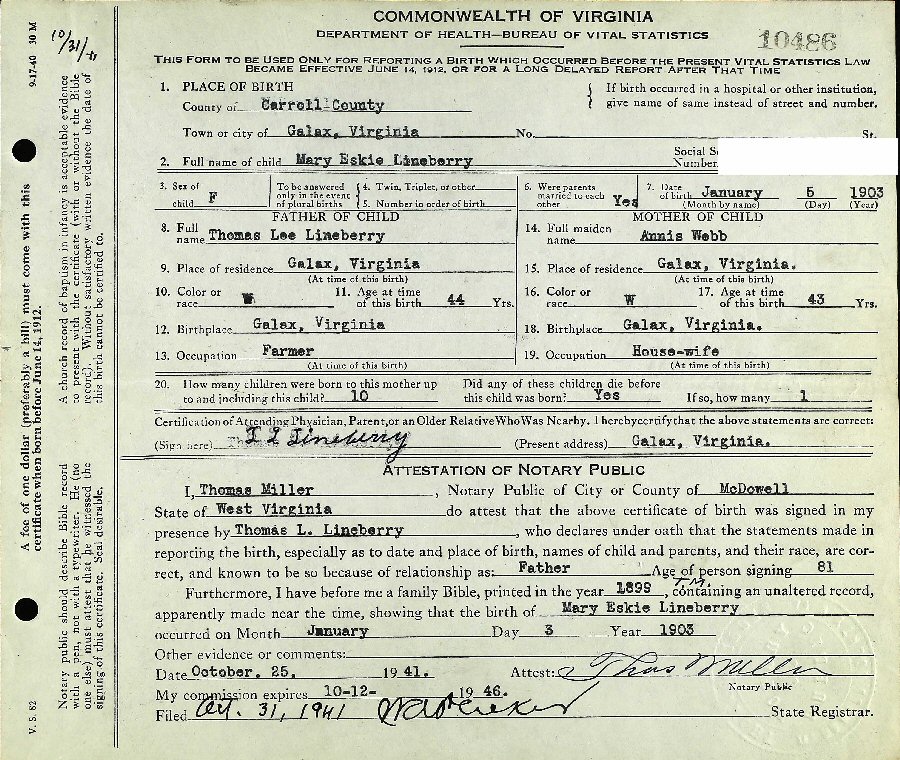 COMMONWEALTH OF VIRGINIA
DEPARTMENT OF HEALTH—BUREAU OF VITAL STATISTICS
10486
THIS FORM TO BE USED ONLY FOR REPORTING A BIRTH WHICH OCCURRED BEFORE THE PRESENT VITAL STATISTICS LAW
BECAME EFFECTIVE JUNE 14, 1912, OR FOR A LONG DELAYED REPORT AFTER THAT TIME
1. PLACE OF BIRTH
County of Carroll County
If birth occurred in a hospital or other institution,
give name of same instead of street and number.
Town or city of Galax, Virginia No. St.
2. Full name of child Mary Eskie Lineberry
Social S
Number
3. Sex of child F
To be answered only in the event of plural births
4. Twin, Triplet, or other
5. Number in order of birth
6. Were parents married to each other Yes
7. Date of birth January 5 1903
(Month by name) (Day) (Year)
FATHER OF CHILD
8. Full name Thomas Lee Lineberry
9. Place of residence Galax, Virginia
(At time of this birth)
10. Color or race W
11. Age at time of this birth 44 Yrs.
12. Birthplace Galax, Virginia
13. Occupation Farmer
(At time of this birth)
MOTHER OF CHILD
14. Full maiden name Annis Webb
15. Place of residence Galax, Virginia.
(At time of this birth)
16. Color or race W
17. Age at time of this birth 43 Yrs.
18. Birthplace Galax, Virginia.
19. Occupation House-wife
(At time of this birth)
20. How many children were born to this mother up to and including this child? 10
Did any of these children die before this child was born? Yes If so, how many 1
Certification of Attending Physician, Parent, or an Older Relative Who Was Nearby. I hereby certify that the above statements are correct:
(Sign here) T L Lineberry (Present address) Galax, Virginia.
ATTESTATION OF NOTARY PUBLIC
I, Thomas Miller, Notary Public of City or County of McDowell
State of West Virginia do attest that the above certificate of birth was signed in my
presence by Thomas L. Lineberry, who declares under oath that the statements made in
reporting the birth, especially as to date and place of birth, names of child and parents, and their race, are cor-
rect, and known to be so because of relationship as: Father Age of person signing 81
Furthermore, I have before me a family Bible, printed in the year 1899, T.M. containing an unaltered record,
apparently made near the time, showing that the birth of Mary Eskie Lineberry
occurred on Month January Day 3 Year 1903
Other evidence or comments:
Date October. 25. 1941. Attest: Thos Miller
Notary Public
My commission expires 10-12- 1946.
Filed Oct. 31, 1941 State Registrar.
9-17-40 30 M
10/31/41
A church record of baptism in infancy is acceptable evidence
to present with the certificate (with or without the Bible
record). Without satisfactory written evidence the date of
this birth cannot be certified to.
A fee of one dollar (preferably a bill) must come with this
certificate when born before June 14, 1912.
Notary public should describe Bible record
with a pen, not with a typewriter. He (no
one else) must attest that he witnessed the
signing of this certificate. Seal desirable.
V. S. 82